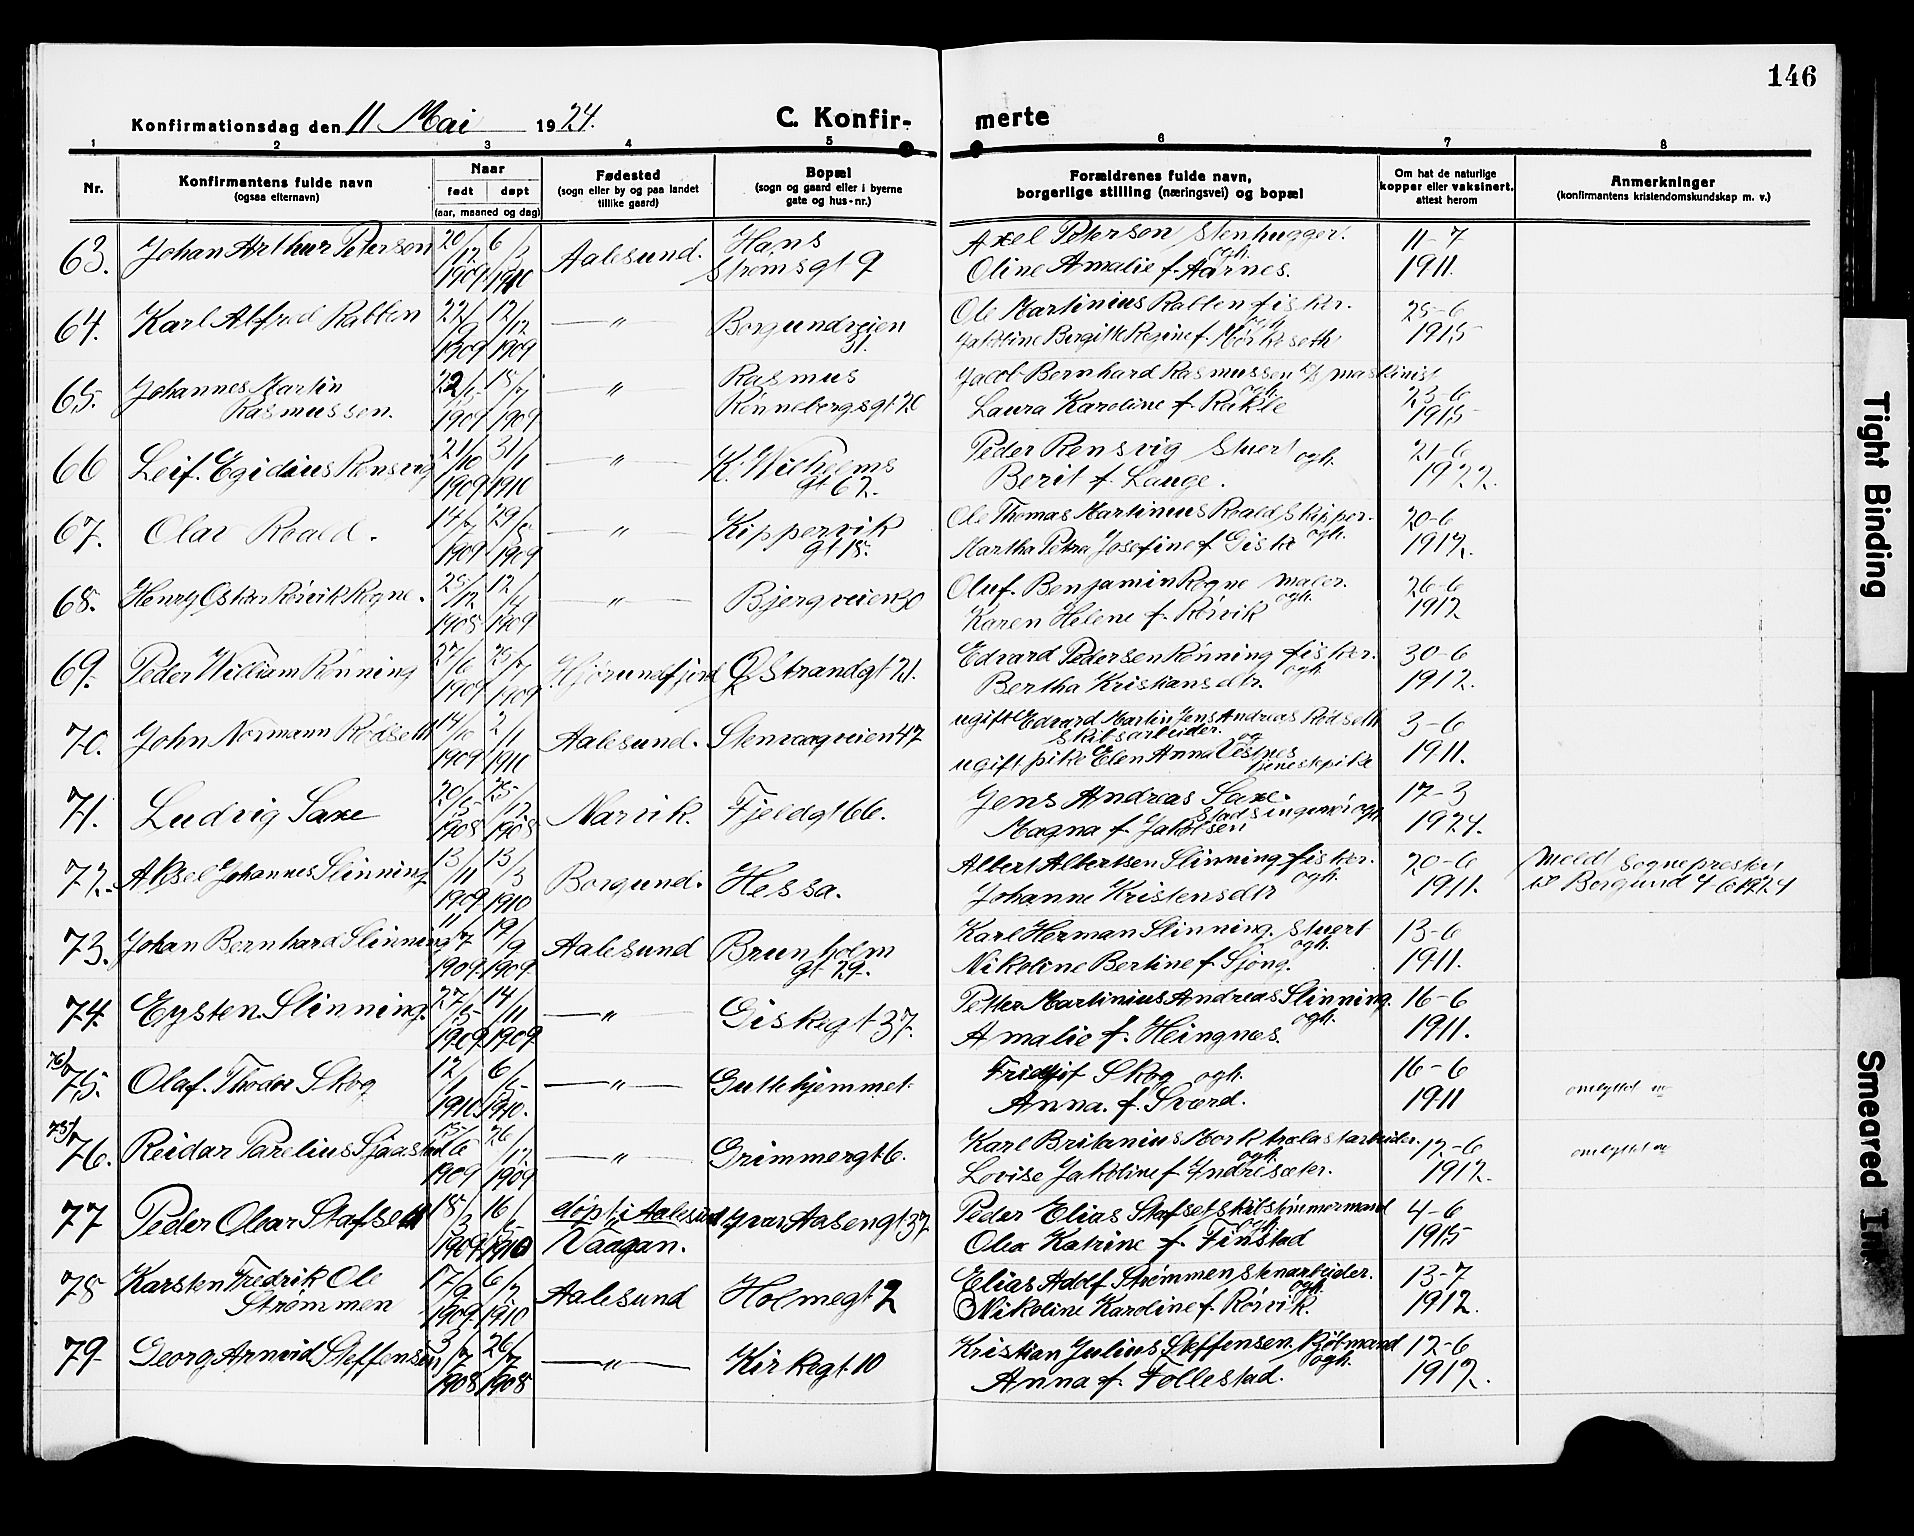 146
Konfirmationsdag den 11 Mai 1924.
C. Konfirmerte
1 2 3 4 5 6 7 8
Nr.
Konfirmantens fulde navn
(ogsaa efternavn)
Naar
født døpt
(aar, maaned og dag)
Fødested
(sogn eller by og paa landet
tillike gaard)
Bopæl
(sogn og gaard eller i byerne
gate og hus-nr.)
Forældrenes fulde navn,
borgerlige stilling (næringsvei) og bopæl
Om hat de naturlige
kopper eller vaksinert.
attest herom
Anmerkninger
(konfirmantens kristendomskundskap m. v.)
63. Johan Arthur Peterson 20/12 1909 6/3 1910 Aalesund. Hans
Strømsgt 9
Axel Peterson Stenhugger. ogh.
Oline Amalie f. Aarnes.
11-7
1911.
64. Karl Alfred Rabben 22/9 1909 12/12 1909 —"— Borgundveien
31.
Ole Martinius Rabben fisker. ogh.
Jakoline Bergitte Regine f. Mørkeseth
25-6
1915
65. Johannes Martin
Rasmussen. 22/5 1909 15/7 1909 —"— Rasmus
Rønnebergsgt 20
Jacob Bernhard Rasmussen maskinist ogh.
Laura Karoline f. Rekle
23-6
1915
66 Leif Egidius Rensvig 21/10 1909 31/1 1910 —"— K. Wilhelms
gt 62.
Peder Rensvig Stuert ogh.
Berit f. Lange.
21-6
1922.
67. Olav Roald. 1909 29/8 1909 —"— Kippervik
gt 15
Ole Thomas Martinius Roald Skipper. ogh.
Martha Petra Josefine f Giske
20-6
1912.
68. Henry Oskar Rørvik Rogne. 25/12 1908 12/4 1909 —"— Bjergveien 30
Oluf. Benjamin Rogne maler. ogh.
Karen Helene f. Rørvik
26-6
1912
69. Peder William Rønning 27/6 1909 25/7 1909 Hjørundfjord Ø Strandgt 21.
Edvard Pedersen Rønning fisker. ogh
Bertha Kristiansdtr.
30-6
1912.
70. John Normann Rødseth 14/10 1909 2/1 1911 Aalesund. Stenvaagveien 47
ugift Edvard Martin Jens Andreas Rødseth
Skibsarbeider. og
ugift pike Elen Anna Vestnes
tjenestepike
3-6
1911.
71. Ludvig Saxe 20/5 1908 25/12 1908 Narvik. Fjeldgt 66.
Jens Andreas Saxe.
Stadsingeniør ogh
Magna f. Jakobsen
17-3
1924.
72. Aksel Johannes Slinning 13/11 1909 13/3 1910 Borgund. Hessa.
Albert Albertsen Slinning fisker. ogh.
Johanne Kristensdtr
20-6
1911.
Meldt Sogneprесten
til Borgund 4-6 1924
73. Johan Bernhard Slinning 11/7 1909 19/9 1909 Aalesund Brunholm
gt 29.
Karl Herman Slinning. Stuert ogh.
Nikoline Bertine f Sjong.
13-6
1911.
74. Eysten Slinning. 27/5 1909 14/11 1909 —"— Giskegt 37.
Petter Martinius Andreas Slinning. ogh.
Amalie f. Heingnes.
16-6
1911.
76/ 75. Olaf. Thodor Skog 12/1 1910 6/5 1910. —"— Guttehjemmet.
Fridtjof Skog ogh.
Anna. f. Sværd.
16-6
1911
omlyttet
75/ 76. Reidar Parelius Sjaastad 15/6 1909 26/12 1909 —"— Grimmergt 6.
Karl Britanius Mork trælastarbeider. ogh.
Lovise Jakobine f Yndresæter.
12-6
1912.
omlyttet
77 Peder Olvar Stafseth 18/3 1909 16/5 1910 døpt i Aalesund
Vaagan. Ivar Aasengt 37
Peder Elias Stafset skibstømmermand ogh.
Olea Katrine f. Finstad
4-6
1915
78 Karsten Fredrik Ole
Strømmen 17/9 1909 6/2 1910 Aalesund Holmegt 2
Elias Adolf Strømmen Stenarbeider. ogh.
Nikoline Karoline f. Rørvik.
13-7
1912.
79 Georg Arnvid Steffensen 3/7 1908 26/7 1908 —"— Kirkegt 10
Kristian Julius Steffensen. Kjøbmand ogh.
Anna f. Follestad.
12-6
1912.
Tight Binding
Smeared Ink